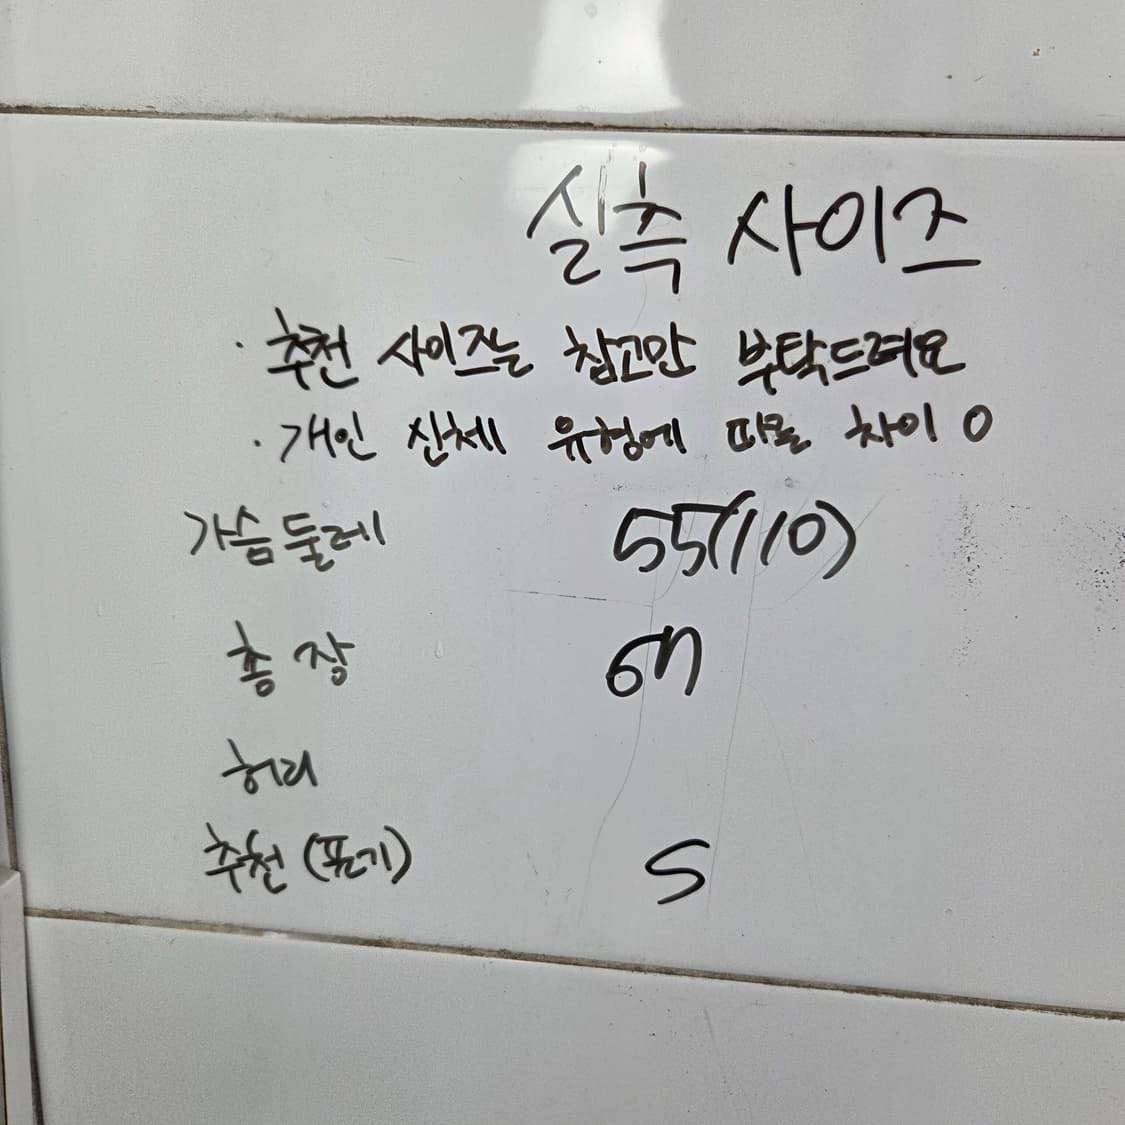 실측 사이즈
· 추천 사이즈는 참고만 부탁드려요
· 개인 신체 유형에 따라 차이 O
가슴둘레 55(110)
총장 67
허리
추천(표기) S